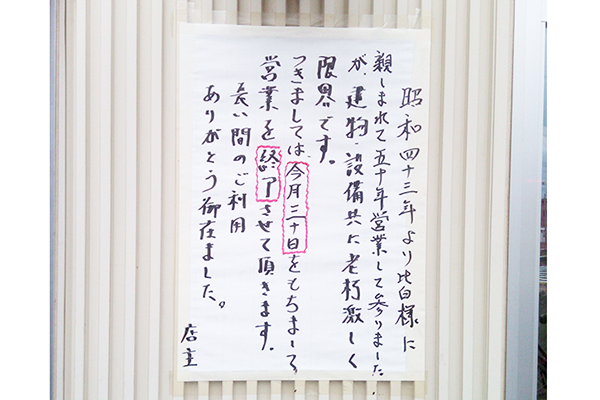 昭和四十三年より皆様に
親しまれて五十年営業して参りました
が、建物、設備共に老朽激しく
限界です。
つきましては、今月三十日をもちまして、
営業を終了させて頂きます。
長い間のご利用
ありがとう御在ました。
店主